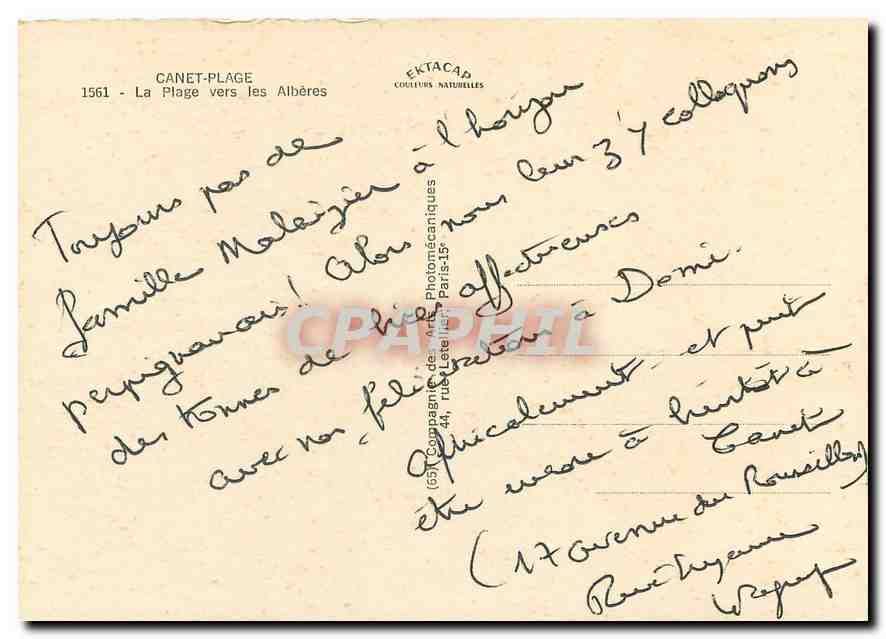 CANET-PLAGE
1561 - La Plage vers les Albères
EKTACAP
COULEURS NATURELLES
Toujours pas de
famille Malaizier à l'horizon
perpignanais! Alors nous leur z'y colloquons
des tonnes de bises affectueuses
avec nos félicitations à Domi.
Amicalement et peut
être même à bientôt à
Canet
(17 avenue du Roussillon)
(65) Compagnie des Arts Photomécaniques
44, rue Letellier, Paris-15e
CPAPHIL